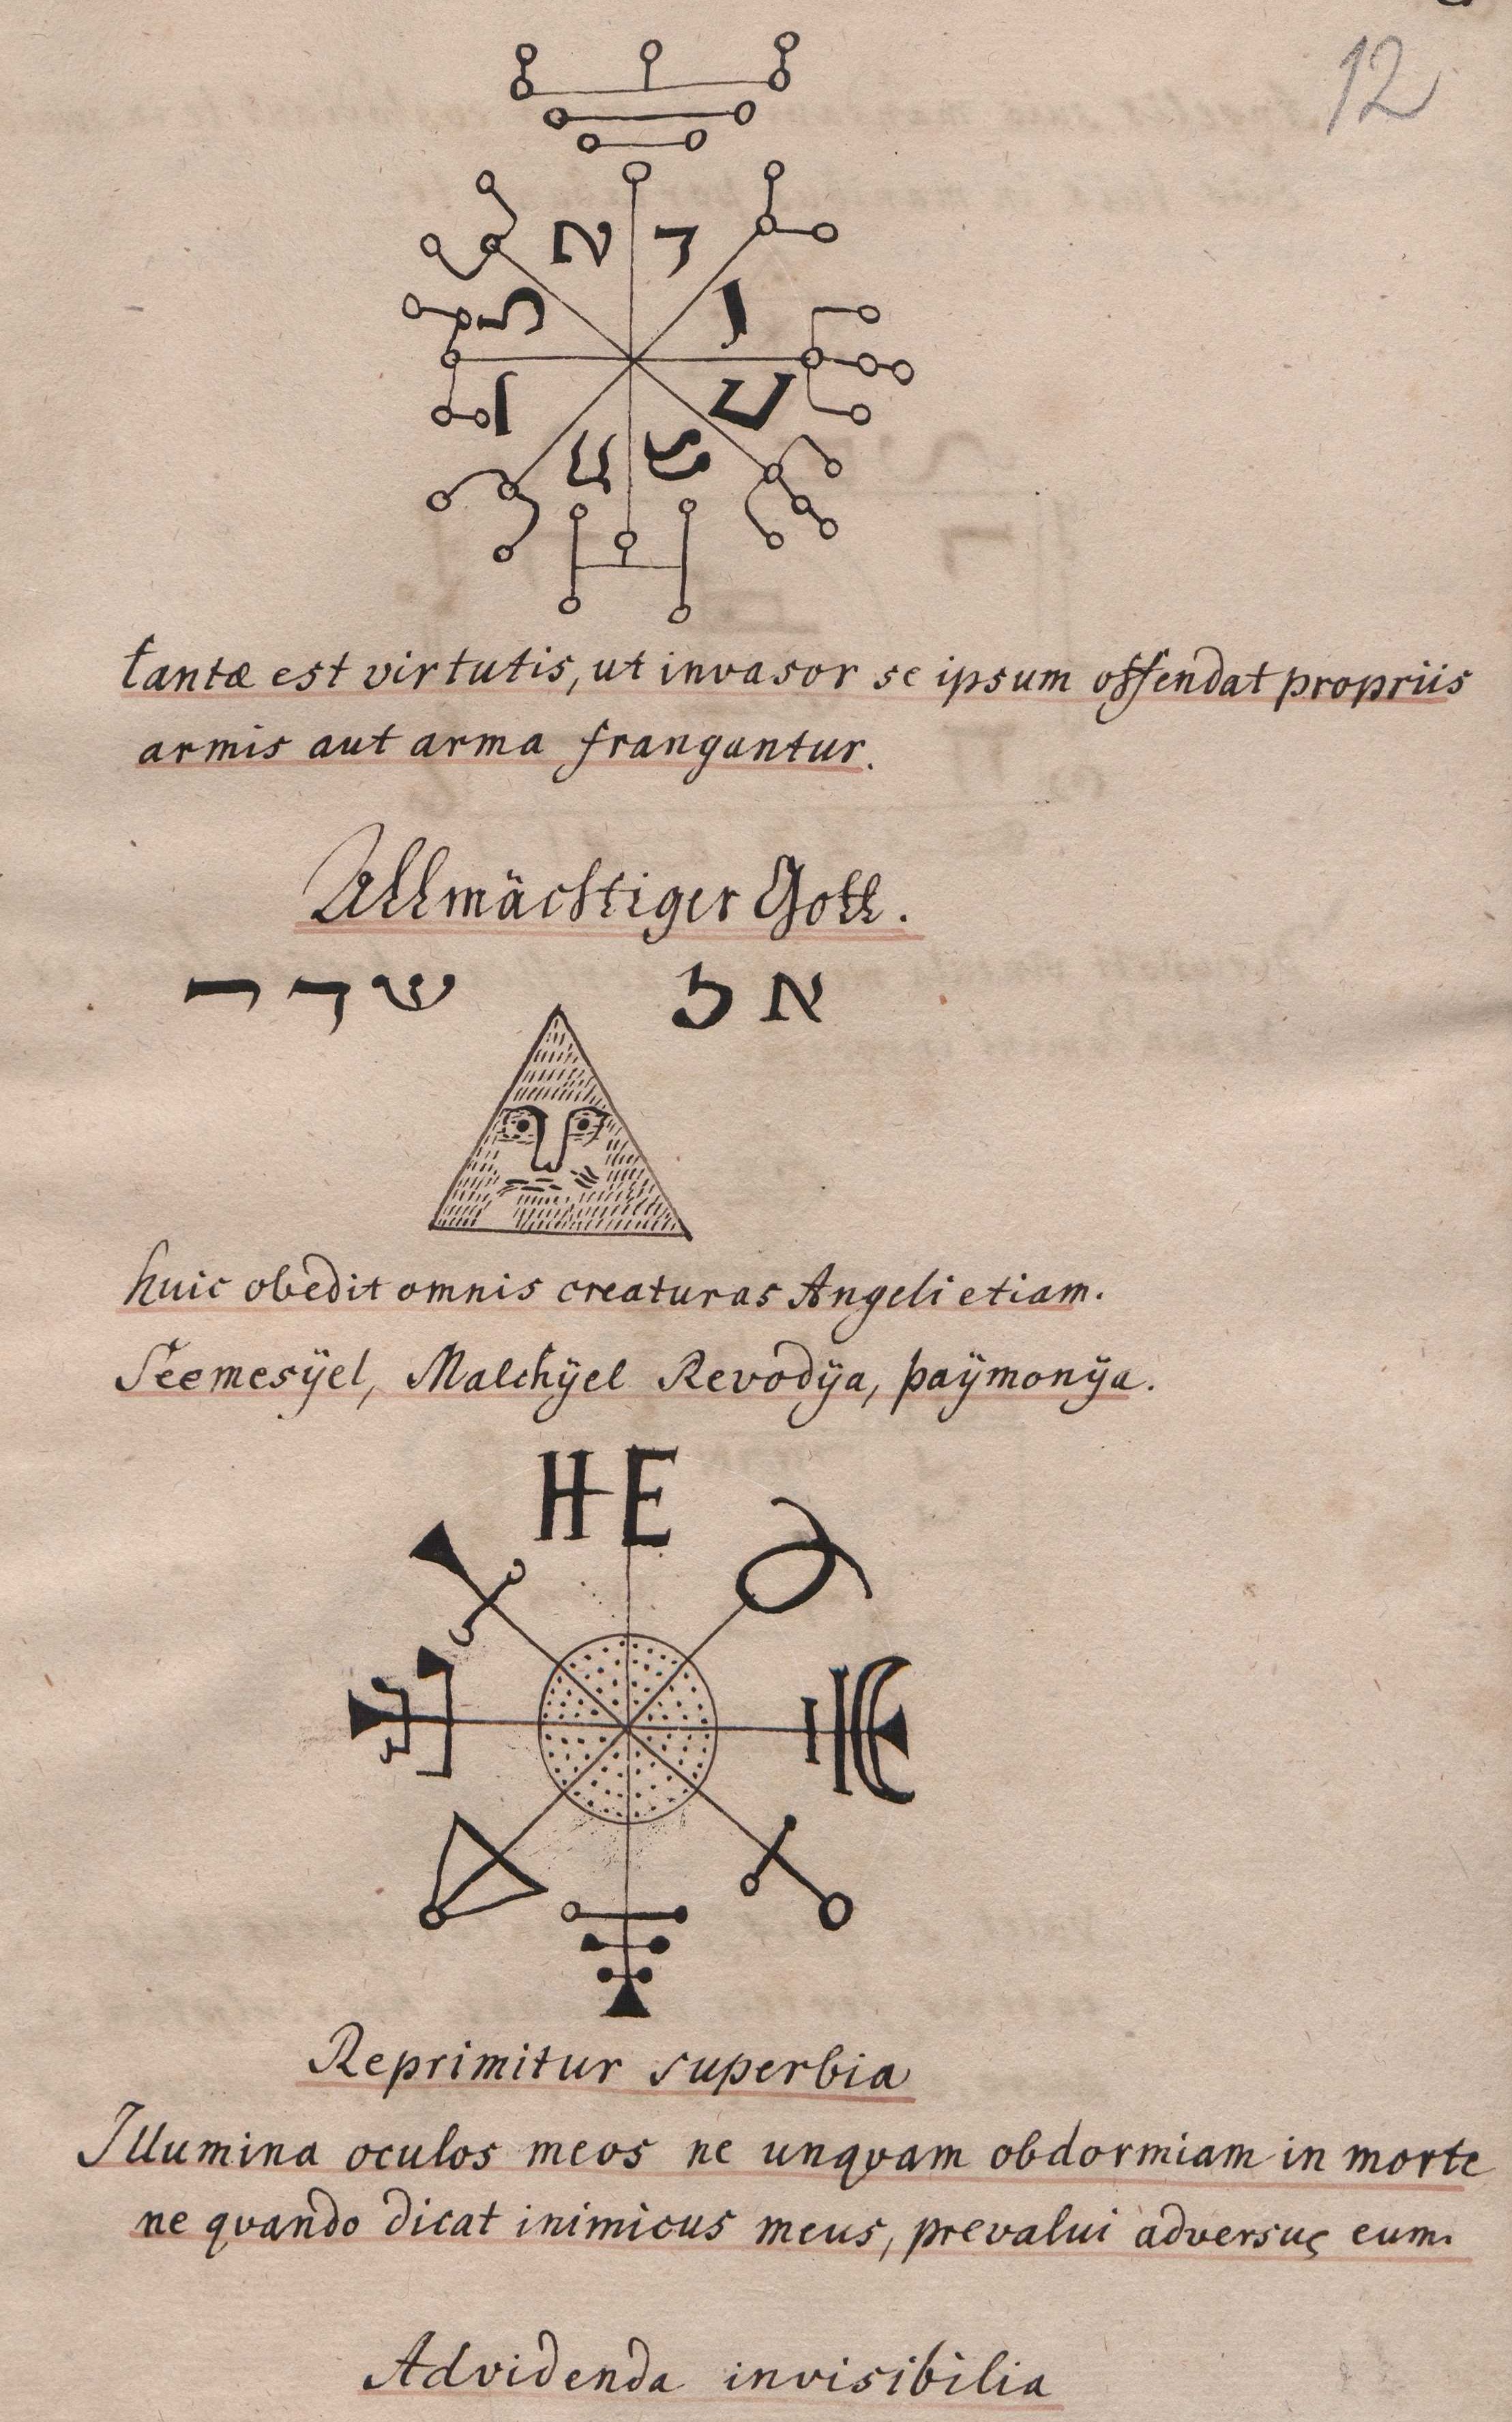 12
tantæ est virtutis, ut invasor se ipsum offendat propriis
armis aut arma frangantur.
Allmächtiger Gott.
אל שדי
huic obedit omnis creaturas Angeli etiam.
Seemesÿel, Malchÿel Revodÿa, paÿmonÿa.
HE
Reprimitur superbia
Illumina oculos meos ne unqvam obdormiam in morte
ne qvando dicat inimicus meus, prevalui adversus eum.
Advidenda invisibilia